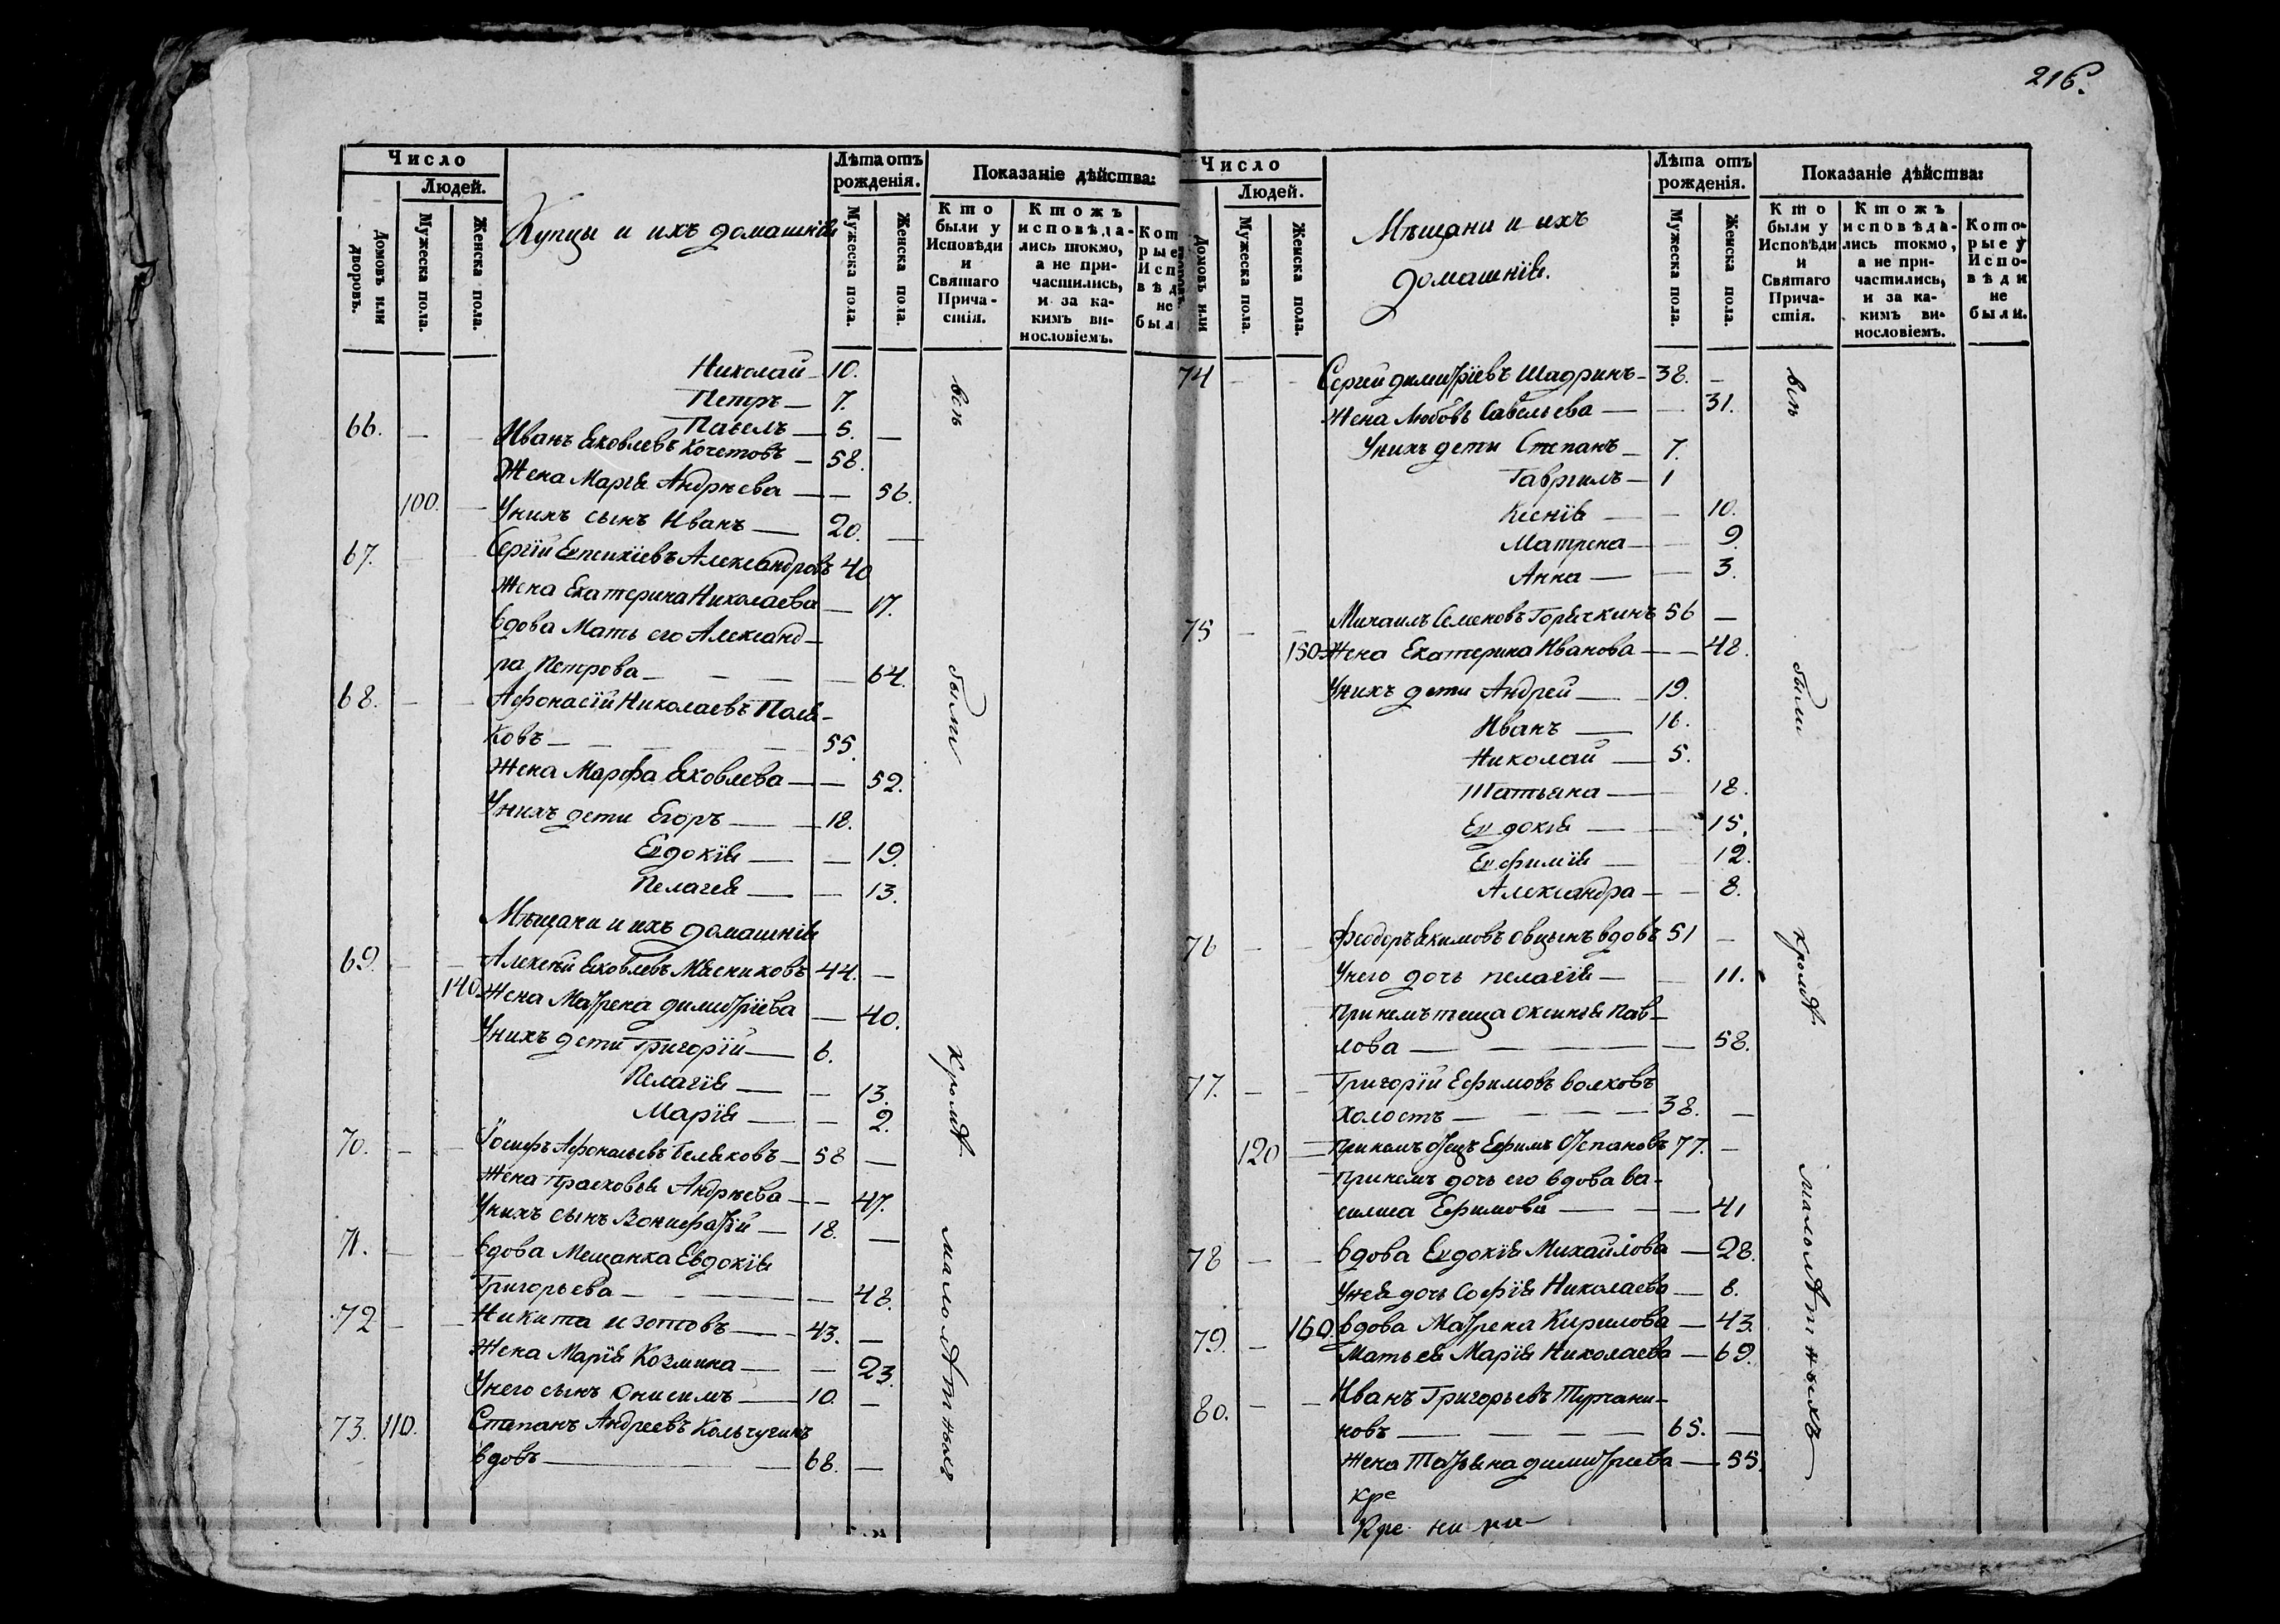 216.
Число
Людей.
Домовъ или дворовъ.
Мужеска пола.
Женска пола.
Купцы и ихъ домашнія
Лѣта отъ рожденія.
Мужеска пола.
Женска пола.
Показаніе дѣйства:
Кто были у Исповѣди и Святаго Причастія.
Ктожъ исповѣдались токмо, а не причастились, и за какимъ винословіемъ.
Николай — 10.
Петръ — 7.
Павелъ — 5. —
66. — — Иванъ Яковлевъ Кочетовъ — 58.
Жена Марія Андрѣева — — 56.
100. — У нихъ сынъ Иванъ — 20. —
67. — — Сергій Евтихіевъ Александровъ 40
Жена Екатерина Николаева — 17.
Вдова Мать его Александ-
ра Петрова — — — — 64.
68. — — Афонасій Николаевъ Поля-
ковъ — — — — 55.
Жена Марфа Яковлева — — 52.
У нихъ дети Егоръ — — 18.
Евдокія — — 19.
Пелагея — — 13.
Мѣщани и ихъ домашнія
69. — — Алексѣй Яковлевъ Мясниковъ 44. —
140. Жена Матрена Димитріева — 40.
У нихъ дети Григорій — 6.
Пелагія — — 13.
Марія — — 2.
70. — — Іосифъ Афонасьевъ Беляковъ — 58 —
Жена Прасковья Андрѣева — — 47.
У нихъ сынъ Вонифатій — 18. —
71. — — Вдова Мещанка Евдокія
Григорьева — — — 48.
72 — — Никита Изотовъ — 43. —
Жена Марія Козмина — — 23.
У него сынъ Онисимъ — 10. —
73. 110. Степанъ Андреевъ Кольчугинъ
вдовъ — — 68. —
всѣ были кромѣ малолѣтныхъ
Число
Людей.
Домовъ или
Мужеска пола.
Женска пола.
Мѣщани и ихъ
домашнія.
Лѣта отъ рожденія.
Мужеска пола.
Женска пола.
Показаніе дѣйства:
Кто были у Исповѣди и Святаго Причастія.
Ктожъ исповѣдались токмо, а не причастились, и за какимъ винословіемъ.
Которые у Исповѣди не были.
74 — — Сергій Димитріевъ Шадринъ — 38. —
Жена Любовь Савельева — — 31.
У нихъ дети Степанъ — 7.
Гавріилъ — 1
Ксенія — — 10.
Матрена — — 9.
Анна — — 3.
75 — — Михаилъ Семеновъ Горячкинъ 56 —
150 Жена Екатерина Иванова — — 48.
У нихъ дети Андрей — 19.
Иванъ — 16.
Николай — 5.
Татьяна — — 18.
Евдокія — — 15.
Евфимія — — 12.
Александра — — 8.
76 — — Феодоръ Якимовъ Овцынъ вдовъ 51 —
У него дочь Пелагія — — 11.
При немъ теща Оксинья Пав-
лова — — — — 58.
77. — — Григорій Ефимовъ Волковъ
холостъ — — — — 38. —
120 — При немъ отецъ Ефимъ Степановъ 77. —
При немъ дочь его вдова Ва-
силиса Ефимова — — — 41
78 — — Вдова Евдокія Михайлова — 28.
У нея дочь Софія Николаева — 8.
79. — 160. Вдова Матрена Кирилова — 43.
Мать ея Марія Николаева — 69.
80. — — Иванъ Григорьевъ Турчани-
новъ — — — — 65. —
Жена Татьяна Димитріева — 55.
всѣ были кромѣ малолѣтныхъ
Кре